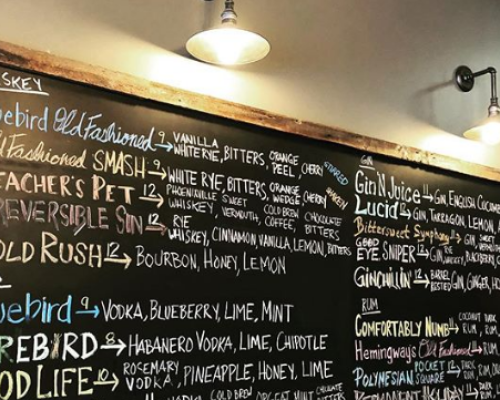 SKEY
uebird Old Fashioned 9 → VANILLA WHITE RYE, BITTERS, ORANGE PEEL, CHERRY STIRRED
Fashioned SMASH 9 → WHITE RYE, BITTERS, ORANGE WEDGE, CHERRY SHAKEN
EACHER'S PET 12 → PHOENIXVILLE SWEET COLD BREW CHOCOLATE WHISKEY, VERMOUTH, COFFEE, BITTERS
REVERSIBLE SIN 12 → RYE WHISKEY, CINNAMON VANILLA, LEMON, BITTERS
OLD RUSH 12 → BOURBON, HONEY, LEMON
uebird 9 → VODKA, BLUEBERRY, LIME, MINT
REBIRD 8 → HABANERO VODKA, LIME, CHIPOTLE
OD LIFE 10 → ROSEMARY VODKA, PINEAPPLE, HONEY, LIME
VODKA, COLD BREW
GIN
Gin N Juice 11 → GIN, ENGLISH CUCUM
Lucid 12 → GIN, TARRAGON, LEMON, A
Bittersweet Symphony → GIN, SWEET
GOOD EYE SNIPER 12 → GIN, BLACKBERRY,
GINCHILLIN' 12 → BARREL RESTED GIN, GINGER, HO
RUM
COMFORTABLY NUMB → COCONUT DARK RUM, RUM,
Hemingway's Old Fashioned → DARK RUM,
POLYNESIAN POCKET SQUARE 12 → DARK RUM,
PERMANENT HOLIDAY DARK